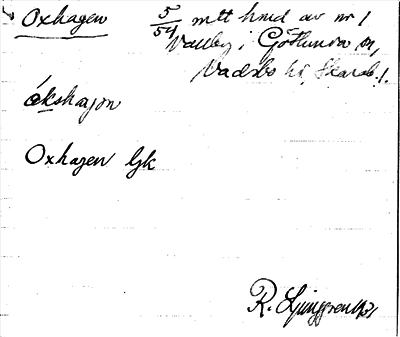 Oxhagen 5/54 mtt hmd av nr 1
Valby i Götlunda sn,
Vadsbo hd, Skarab. l.
ókshajen
Oxhagen Gk
R. Ljunggren 1931